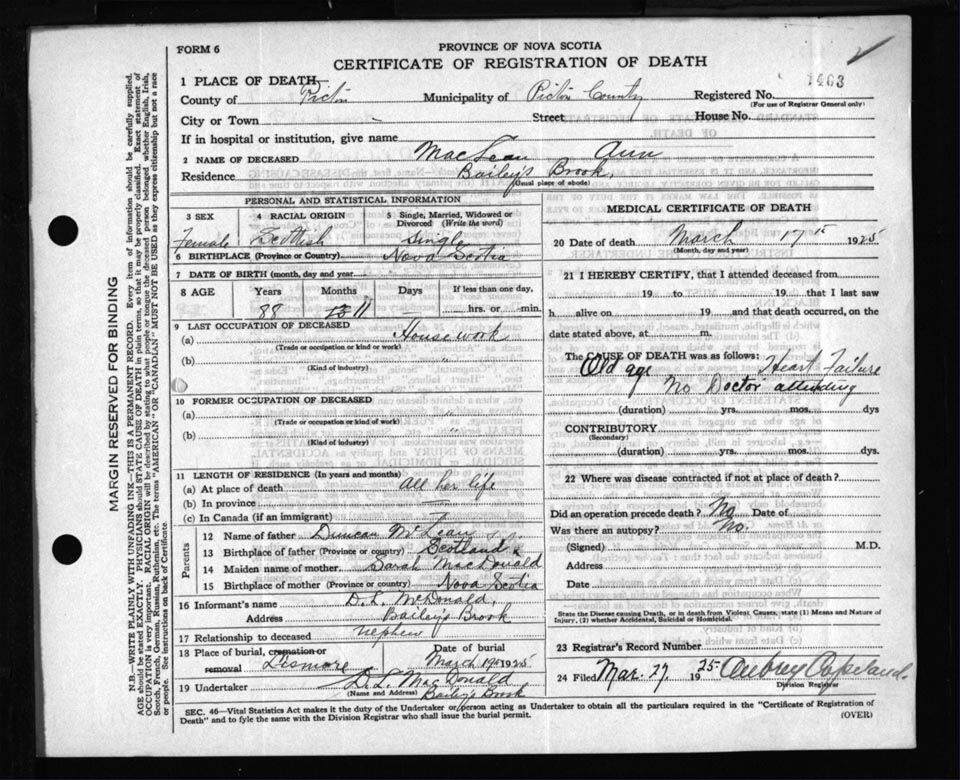 FORM 6
PROVINCE OF NOVA SCOTIA
CERTIFICATE OF REGISTRATION OF DEATH
1403
1 PLACE OF DEATH—
County of Pictou Municipality of Pictou County Registered No.
(For use of Registrar General only)
City or Town Street House No.
If in hospital or institution, give name
2 NAME OF DECEASED MacLean Ann
Residence Bailey's Brook,
(Usual place of abode)
PERSONAL AND STATISTICAL INFORMATION
3 SEX 4 RACIAL ORIGIN 5 Single, Married, Widowed or Divorced (Write the word)
Female Scottish Single
6 BIRTHPLACE (Province or Country) Nova Scotia
7 DATE OF BIRTH (month, day and year
8 AGE Years Months Days If less than one day,
88 11 hrs. or min.
9 LAST OCCUPATION OF DECEASED
(a) House work
(Trade or occupation or kind or work)
(b)
(Kind of industry)
10 FORMER OCCUPATION OF DECEASED
(a) "
(Trade or occupation or kind of work)
(b) "
(Kind of industry)
11 LENGTH OF RESIDENCE (In years and months)
(a) At place of death All her life
(b) In province
(c) In Canada (if an immigrant)
Parents
12 Name of father Duncan McLean
13 Birthplace of father (Province or country) Scotland
14 Maiden name of mother Sarah MacDonald
15 Birthplace of mother (Province or country) Nova Scotia
16 Informant's name D. L. McDonald,
Address Bailey's Brook
17 Relationship to deceased nephew
18 Place of burial, cremation or removal Lismore Date of burial March 19 1925
19 Undertaker D. L. MacDonald
(Name and Address) Bailey's Brook
MEDICAL CERTIFICATE OF DEATH
20 Date of death March 17th 1925
(Month, day and year)
21 I HEREBY CERTIFY, that I attended deceased from
19 to 19 that I last saw
h alive on 19 and that death occurred, on the
date stated above, at m.
The CAUSE OF DEATH was as follows: Heart Failure
Old age
No Doctor attending
(duration) yrs. mos. dys
CONTRIBUTORY
(Secondary)
(duration) yrs. mos. dys.
22 Where was disease contracted if not at place of death?
Did an operation precede death? No Date of
Was there an autopsy? No.
(Signed) M.D.
Address
Date
State the Disease causing Death, or in death from Violent Causes, state (1) Means and Nature of Injury, (2) whether Accidental, Suicidal or Homicidal.
23 Registrar's Record Number
24 Filed Mar. 27. 1925 Aubrey Copeland.
Division Registrar
SEC. 46—Vital Statistics Act makes it the duty of the Undertaker or person acting as Undertaker to obtain all the particulars required in the "Certificate of Registration of
Death" and to fyle the same with the Division Registrar who shall issue the burial permit. (OVER)
MARGIN RESERVED FOR BINDING
N.B.—WRITE PLAINLY WITH UNFADING INK—THIS IS A PERMANENT RECORD. Every item of information should be carefully supplied.
AGE should be stated EXACTLY. PHYSICIANS should STATE CAUSE OF DEATH in plain terms, so that it may be properly classified. Exact statement of
OCCUPATION is very important. RACIAL ORIGIN will be described by stating to what people or tongue the deceased person belonged whether English, Irish,
Scotch, French, German, Russian, Ruthenian, etc. The terms "AMERICAN" OR "CANADIAN" MUST NOT BE USED as they express citizenship but not a race
or people. See instructions on back of Certificate.